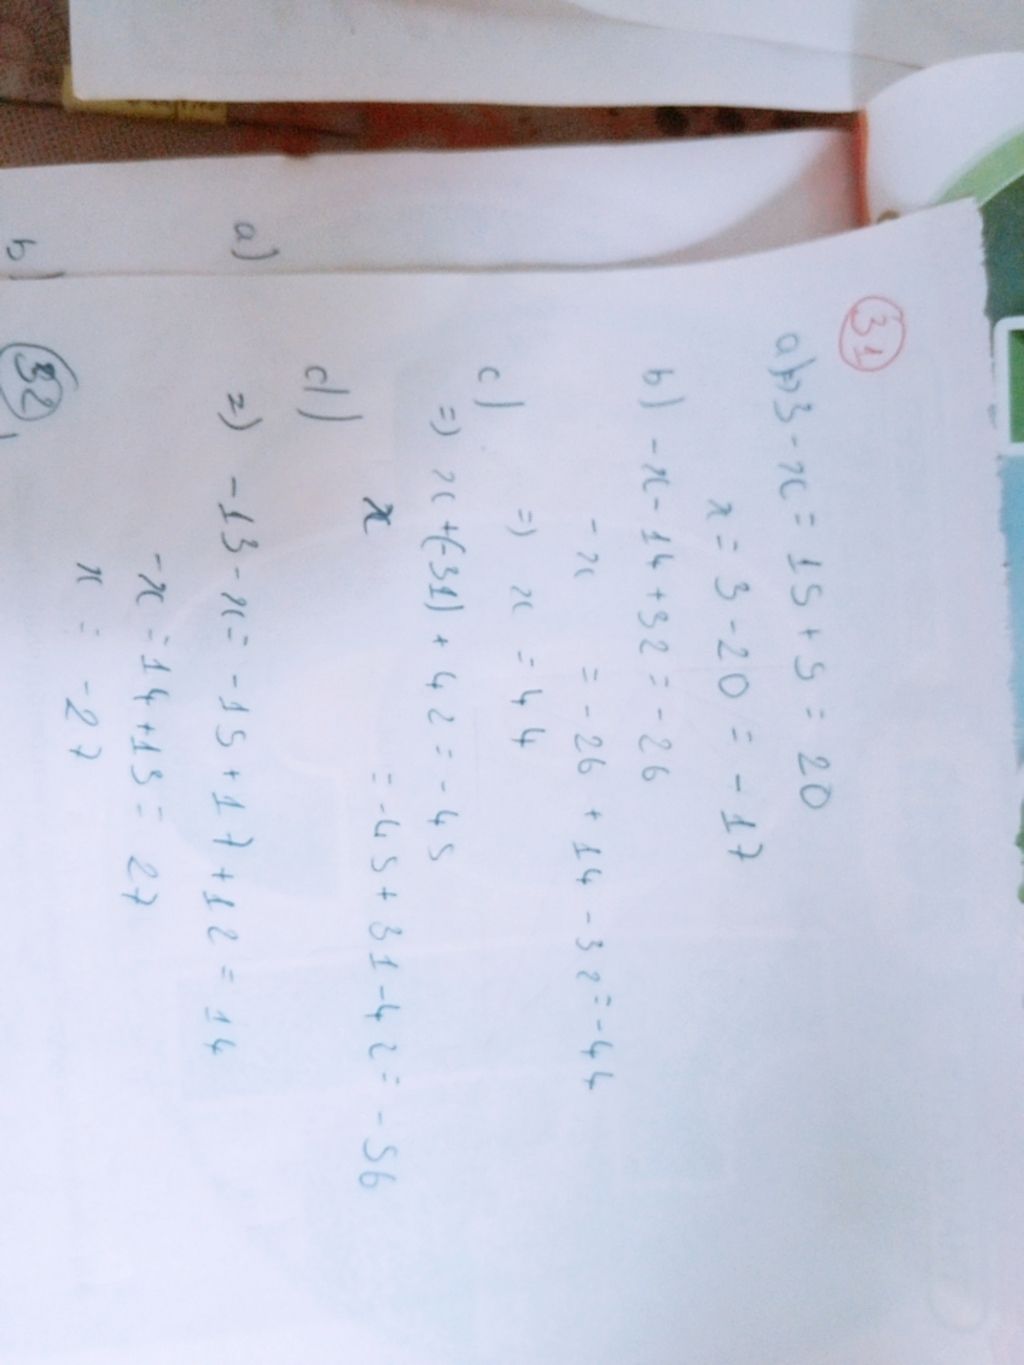 31
a) 3 - x = 15 + 5 = 20
x = 3 - 20 = - 17
b) - x - 14 + 32 = - 26
- x = - 26 + 14 - 32 = - 44
=) x = 44
c)
=) x + (-31) + 42 = - 45
x = - 45 + 31 - 42 = - 56
d)
=) - 13 - x = - 15 + 17 + 12 = 14
- x = 14 + 13 = 27
x = - 27
32
a)
b)